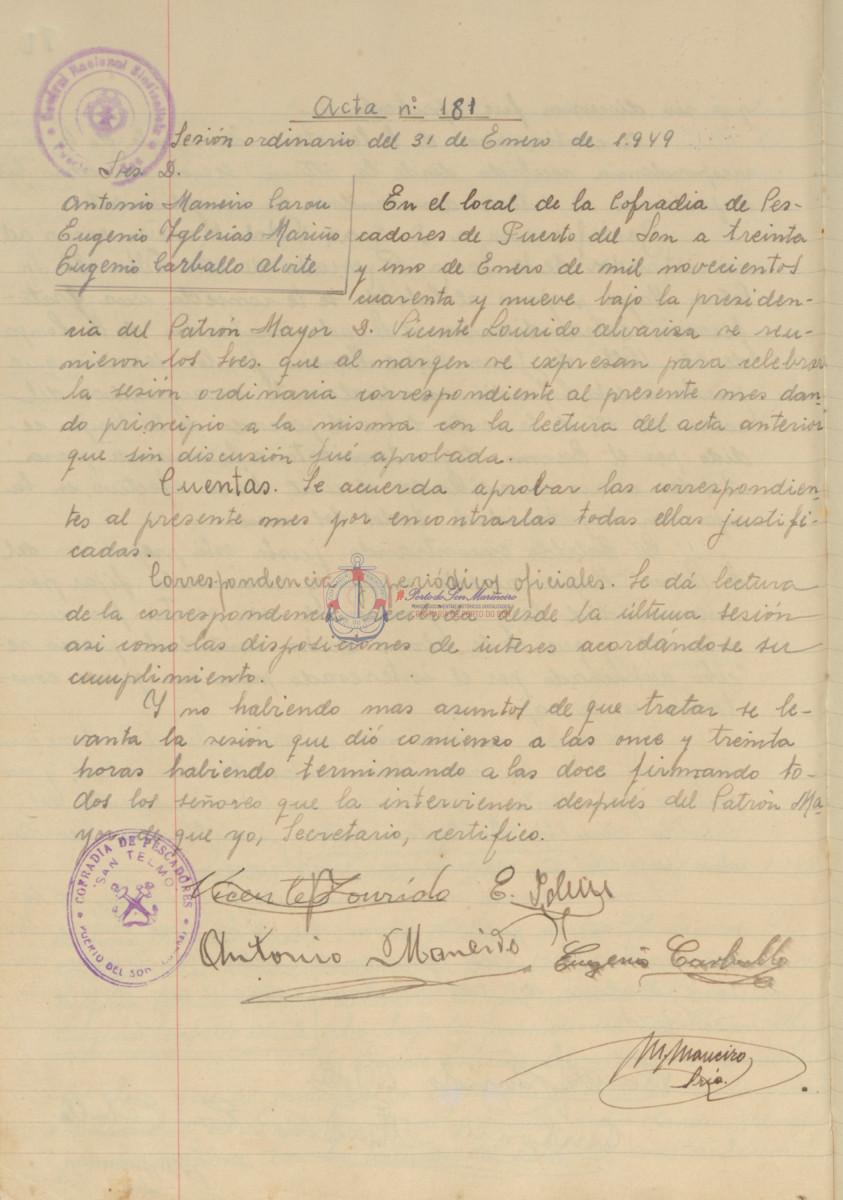 Central Nacional Sindicalista
Acta nº 181
Sesión ordinario del 31 de Enero de 1.949
Sres D.
Antonio Maneiro Carou
Eugenio Yglesias Mariño
Eugenio Carballo Alvite
En el local de la Cofradia de Pes-
cadores de Puerto del Son a treinta
y uno de Enero de mil novecientos
cuarenta y nueve bajo la presiden-
cia del Patrón Mayor D. Vicente Lourido Alvariza se reu-
nieron los Sres. que al margen se expresan para celebrar
la sesión ordinaria correspondiente al presente mes dan-
do principio a la misma con la lectura del acta anterior
que sin discusión fué aprobada.
Cuentas. Se acuerda aprobar las correspondien-
tes al presente mes por encontrarlas todas ellas justifi-
cadas.
Correspondencia periódicos oficiales. Se dá lectura
de la correspondencia recibida desde la última sesión
asi como las disposiciones de interes acordándose su
cumplimiento.
Y no habiendo mas asuntos de que tratar se le-
vanta la sesión que dió comienzo a las once y treinta
horas habiendo terminando a las doce firmando to-
dos los señores que la intervienen después del Patrón Ma-
yor de que yo, Secretario, certifico.
Porto do Son Mariñeiro
COFRADIA DE PESCADORES
"SAN TELMO"
PUERTO DEL SON
Vicente Lourido E.
Antonio Maneiro Eugenio Carballo
M. Maneiro
Srio.